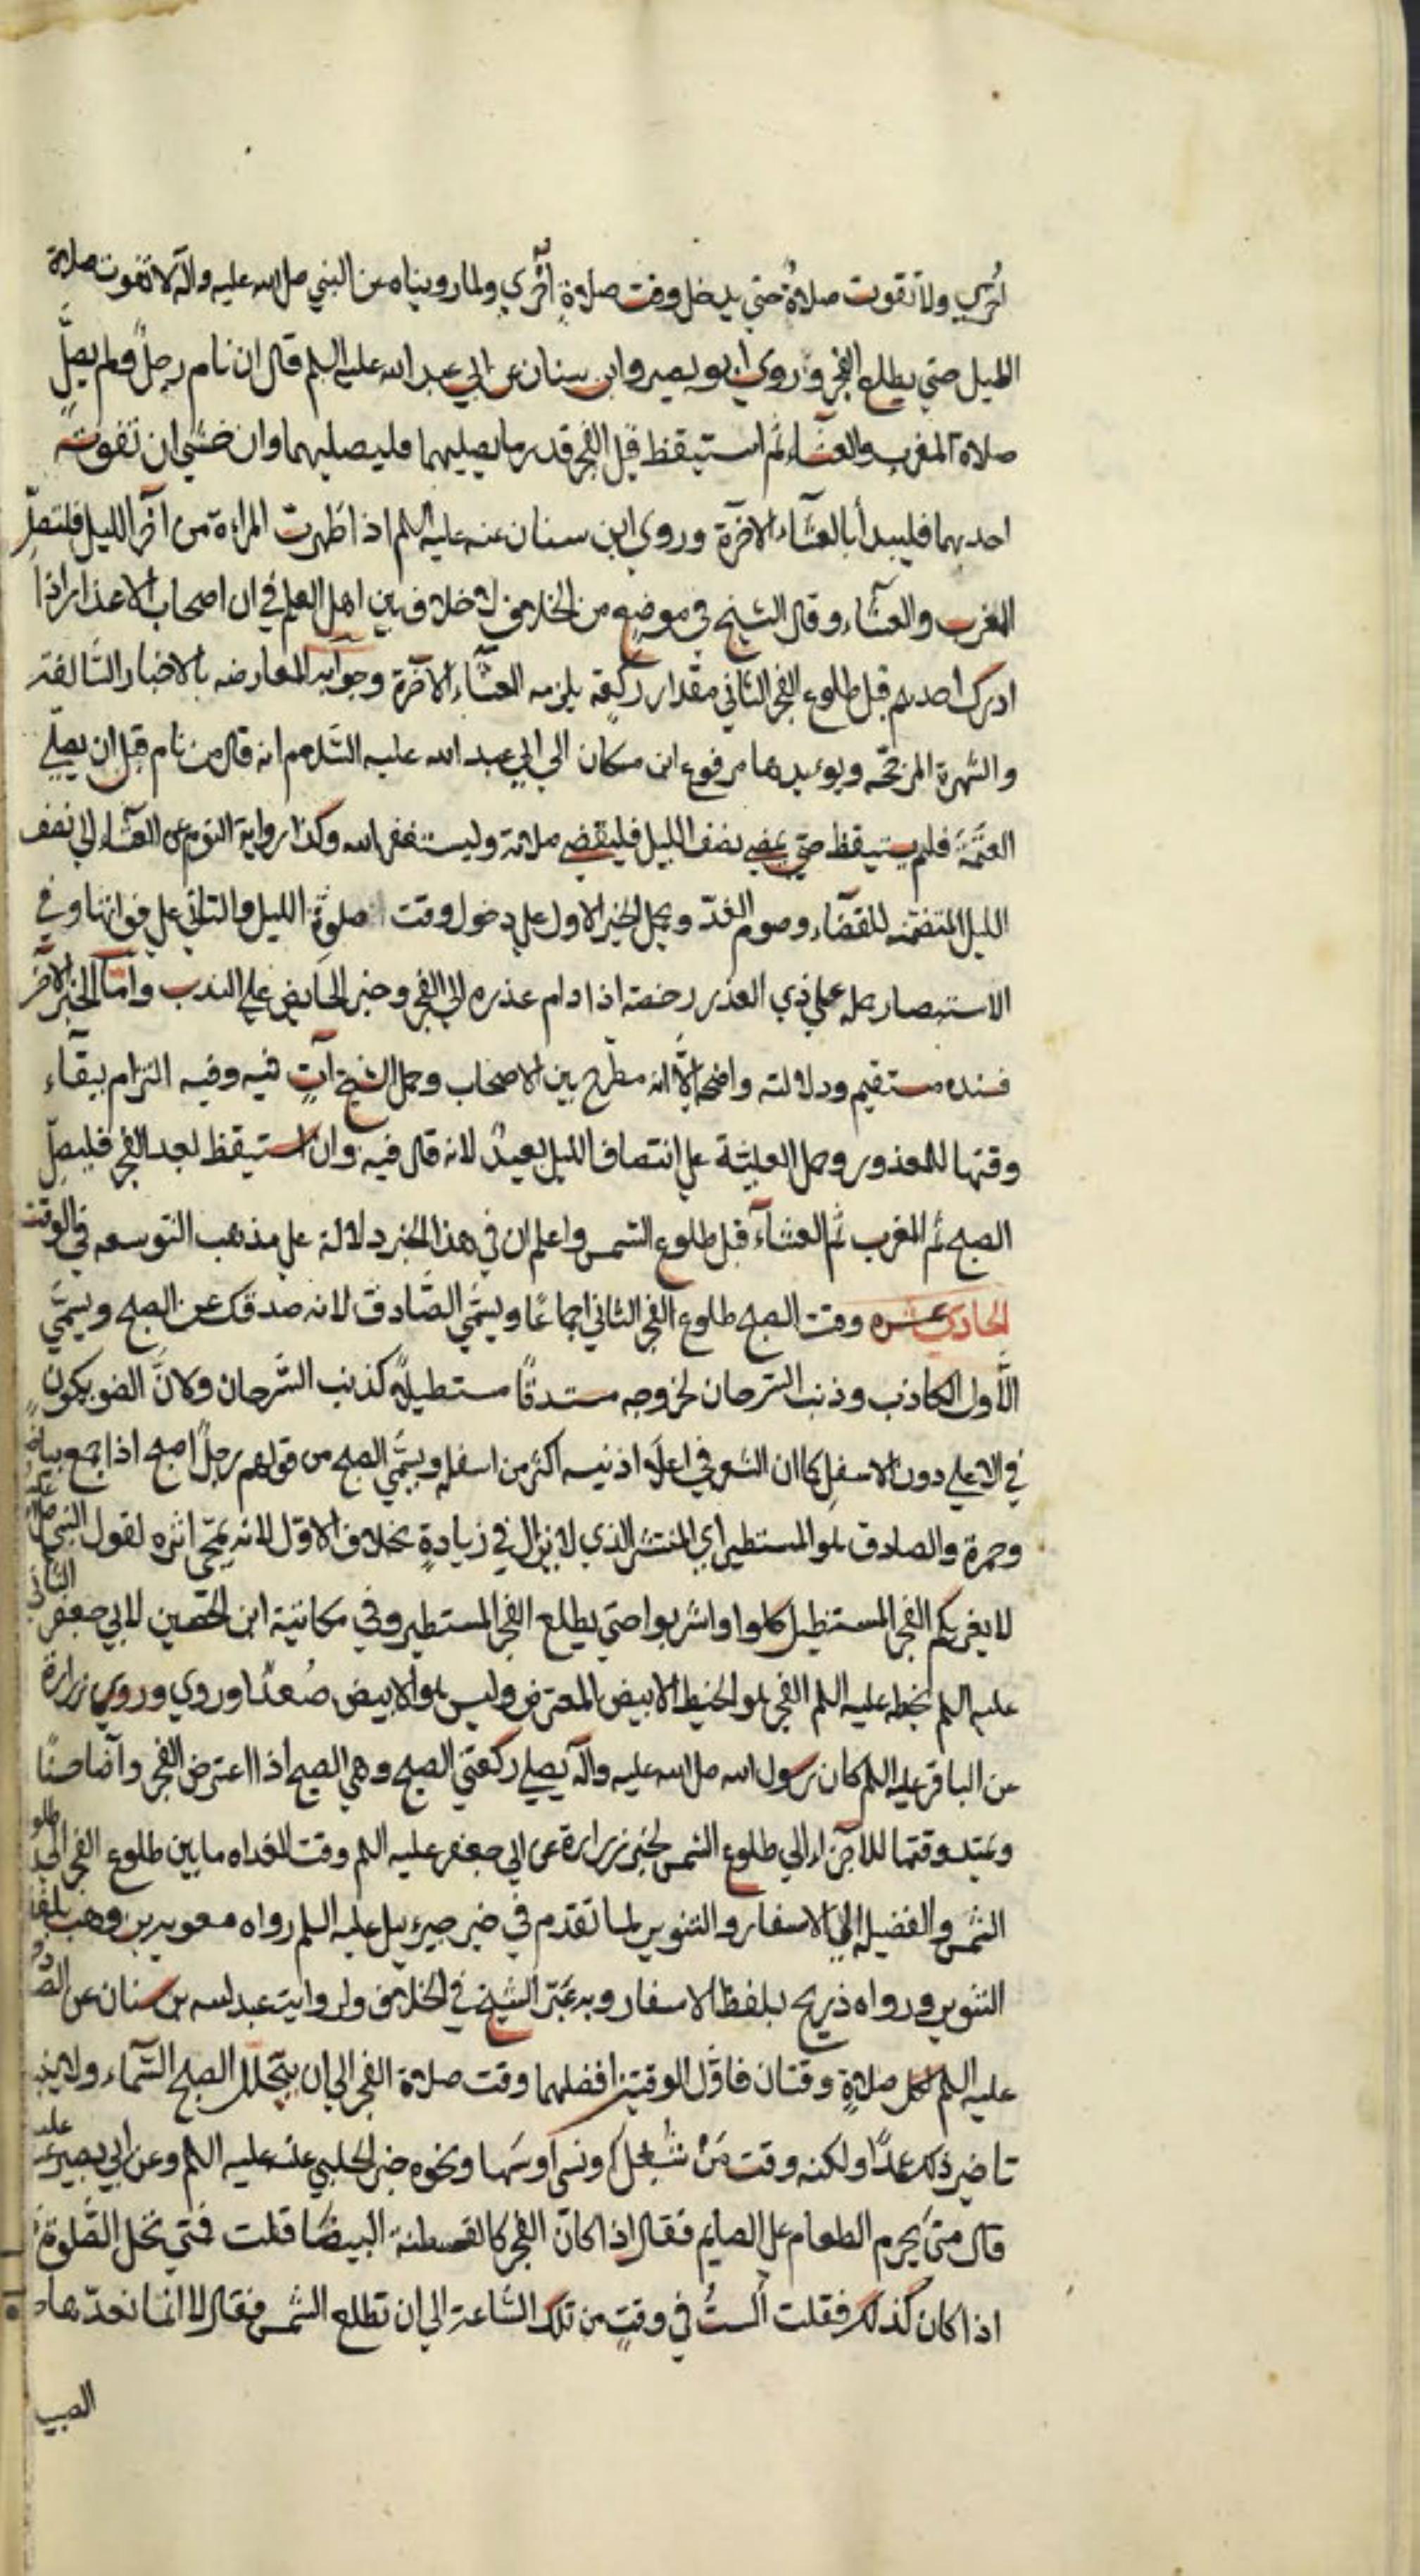 اخري ولا تفوت صلاة حتي يدخل وقت صلاة اخري ولما رويناه عن النبي صلى الله عليه واله لا تفوت صلاة
الليل حتي يطلع الفجر وروي ابو بصير وابن سنان عن ابي عبد الله عليه السلم قال ان نام رجل ولم يصل
صلاة المغرب والعشاء ثم استيقظ قبل الفجر قدر ما يصليهما فليصليهما وان خشي ان تفوته
احديهما فليبدأ بالعشاء الاخرة وروي ابن سنان عنه عليه السلم اذا طهرت المراة من آخر الليل فلتصل
المغرب والعشاء وقال الشيخ في موضع من الخلاف لا خلاف بين اهل العلم في ان اصحاب الاعذار اذا
ادرك احدهم قبل طلوع الفجر الثاني مقدار ركعة يلزمه العشاء الآخرة وجوابه المعارضه بالاخبار السالفة
والشهرة المرجحه ويؤيدها مرفوع ابن مسكان الي ابي عبد الله عليه السلام انه قال من نام قبل ان يصلي
العتمة فلم يستيقظ حتي يمضي نصف الليل فليقض صلاته وليستغفر الله وكذا رواية النوم عن العشاء الي نصف
الليل المتضمنه للقضاء وصوم الغد ويحمل الخبر الاول علي دخول وقت صلوة الليل والثاني علي فواتها وفي
الاستبصار حمله علي ذي العذر رخصة اذا دام عذره الي الفجر وخبر الحايض علي الندب واما الخبر الآخر
فسنده مستقيم ودلالته واضحة الا انه مطرح بين الاصحاب وحمل الشيخ آت فيه وفيه التزام ببقاء
وقتها للمعذور وحمل العليته علي انتصاف الليل بعيد لانه قال فيه وان استيقظ بعد الفجر فليصل
الصبح ثم المغرب ثم العشاء قبل طلوع الشمس واعلم ان في هذا الخبر دلالة علي مذهب التوسعه في الوقت
الحادي عشره وقت الصبح طلوع الفجر الثاني اجماعًا ويسمي الصادق لانه صدقك عن الصبح ويسمي
الاول الكاذب وذنب السرحان لخروجه مستدقًا مستطيلا كذنب السرحان ولان الضو يكون
في الاعلي دون الاسفل كما ان الشعر في اعلا ذنبه اكثر من اسفله ويسمي الصبح من قولهم رجل اصبح اذا جمع بياضا
وحمرة والصادق هو المستطير اي المنتشر الذي لا يزال في زيادة بخلاف الاول لانه يمحي اثره لقول النبي صلى الله عليه
لا يغرنكم الفجر المستطيل كلوا واشربوا حتي يطلع الفجر المستطير وفي مكاتبة ابن الحصين لابي جعفر الثاني
عليه السلم بخطه عليه السلم الفجر هو الخيط الابيض المعترض وليس هو الابيض صُعدًا وروي وروي زرارة
عن الباقر عليه السلم كان رسول الله صلى الله عليه واله يصلي ركعتي الصبح وهي الصبح اذا اعترض الفجر وأضا حسنًا
ويمتد وقتها للاجزاء الي طلوع الشمس لخبر زرارة عن ابي جعفر عليه السلم وقت الغداه ما بين طلوع الفجر الي طلوع
الشمس والفضيله الي الاسفار والتنوير لما تقدم في خبر جبرئيل عليه السلم رواه معوية بن وهب بلفظ
التنوير ورواه ذريح بلفظ الاسفار وبه عبر الشيخ في الخلاف ولروايت عبد الله بن سنان عن الصادق
عليه السلم لكل صلاة وقتان فاول الوقتين افضلهما وقت صلاة الفجر الي ان يتجلل الصبح السماء ولا ينبغي
تاخير ذلك عمدًا ولكنه وقت من شُغل او نسي او سها ونحوه خبر الحلبي عنه عليه السلم وعن ابي بصير عنه عليه
قال متي يحرم الطعام علي الصايم فقال اذا كان الفجر كالقبطية البيضا قلت فمتي تحل الصلوة
اذا كان كذلك فقلت الستُ في وقت من تلك الساعة الي ان تطلع الشمس فقال لا انما نعدها ص
الصبي